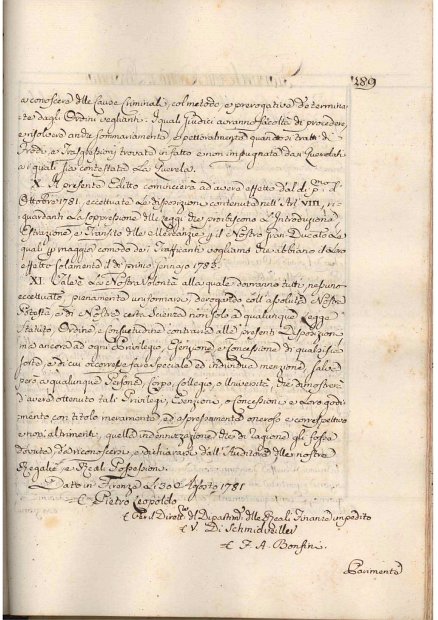 289
a conoscere delle Cause Criminali, col metodo, e prerogative determina
te dagli Ordini veglianti. I quali Giudici avranno facoltà di procedere,
e risolvere anche sommariamente, e pettoralmente quando si tratti di
Frodi, e Trasgressioni trovate in fatto e non impugnate da i Querelati
a i quali sia contestata la Querela.
X. Il presente Editto comincierà ad avere effetto dal dì pmo
Ottobre 1781, eccettuate le disposizioni contenute nell' Art. VIII, ri-
guardanti la soppressione delle Leggi che proibiscono l' Introduzione
Estrazione e Transito delle Mercanzie, il Nostro Gran Ducato Le
quali maggior comodo dei Trafficanti vogliamo che abbiano il Loro
effetto solamente il dì primo Gennajo 1783.
XI. Tale è La Nostra Volontà alla quale dovranno tutti, nessuno
eccettuato, pienamente uniformarsi, derogando coll' assoluta Nostra
Potestà, e di Nostra certa Scienza non solo a qualunque Legge
Statuto, Ordine, e Consuetudine contraria alle presenti Disposizioni
ma ancora ad ogni Privilegio, Esenzione, e Concessione di qualsisia
sorte, e di cui occorresse fare speciale ed individua menzione, salva
però a qualunque Persona, Corpo, Collegio, o Università che dimostrerà
d' avere ottenuto tali Privilegi, Esenzioni, o Concessioni e Loro godi-
mento con titolo meramente ed espressamente oneroso e correspettivo
e non altrimenti, quella indennizzazione che di ragione gli fosse
dovuta da riconoscersi, e dichiararsi dall' Auditore delle nostre
Regalie e Reali Possessioni.
Dato in Firenze Li 30 Agosto 1781
Pietro Leopoldo
del Dipartim. delle Reali Finanze impedito
V. Di Schmidweiller
F. A. Bonfini
Parimente